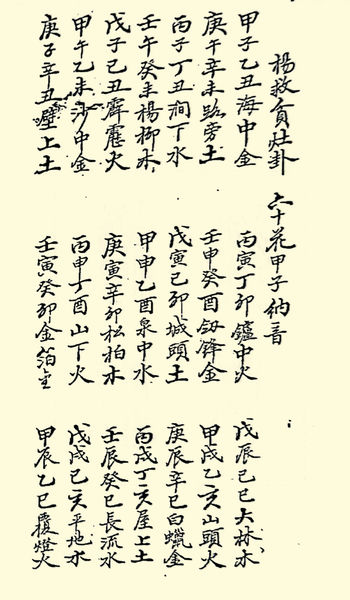 楊救貧灶卦 六十花甲子納音
甲子乙丑海中金 丙寅丁卯鑪中火 戊辰己巳大林木
庚午辛未路旁土 壬申癸酉釼鋒金 甲戌乙亥山頭火
丙子丁丑澗下水 戊寅己卯城頭土 庚辰辛巳白蠟金
壬午癸未楊柳木 甲申乙酉泉中水 丙戌丁亥屋上土
戊子己丑霹靂火 庚寅辛卯松柏木 壬辰癸巳長流水
甲午乙未沙中金 丙申丁酉山下火 戊戌己亥平地木
庚子辛丑壁上土 壬寅癸卯金箔金 甲辰乙巳覆燈火